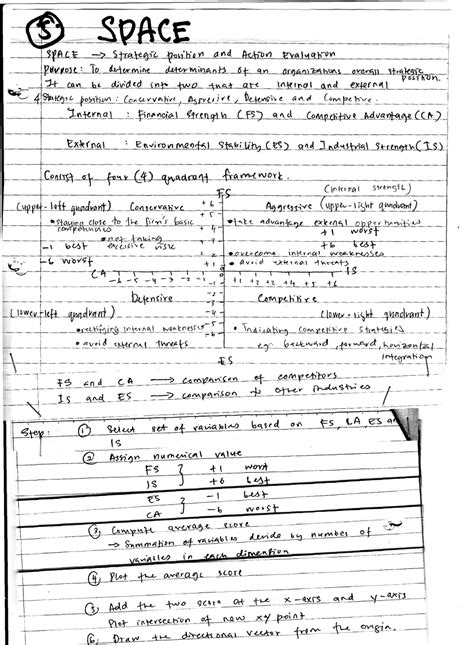 5 SPACE
SPACE → Strategic position and Action Evaluation
purpose: To determine determinants of an organizations overall strategic position.
It can be divided into two that are internal and external
4 strategic position: Conservative, Aggresive, Defensive and Competitive.
Internal : Financial Strength (FS) and Competitive Advantage (CA)
External : Environmental Stability (ES) and Industrial Strength (IS)
Consist of four (4) quadrant framework.
FS (internal strength)
(upper-left quadrant) Conservative +6 Aggressive (upper-right quadrant)
• staying close to the firm's basic competencies +5 • take advantage external opportunities
+4 +1 worst
• not taking excisive risk
-1 best +6 best
• overcome internal weaknesses
-6 worst +1 • avoid external threats
CA -6 -5 -4 -3 -2 -1 +1 +2 +3 +4 +5 +6 IS
Defensive -2 Competitive
-3
(lower-left quadrant) -4 (lower-right quadrant)
• rectifying internal weaknesses -5 • Indicating competitive strategies
• avoid external threats -6 eg: backward, forward, horizontal integration
ES
FS and CA → comparison of competitors
IS and ES → comparison to other industries
Step: ① Select set of variables based on FS, CA, ES an
IS
② Assign numerical value
FS } +1 worst
IS } +6 best
ES } -1 best
CA } -6 worst
③ Compute average score
→ Summation of variables devide by number of variables in each dimention
④ Plot the average score
⑤ Add the two score at the x-axis and y-axis
Plot intersection of new xy point
⑥ Draw the directional vector from the origin.